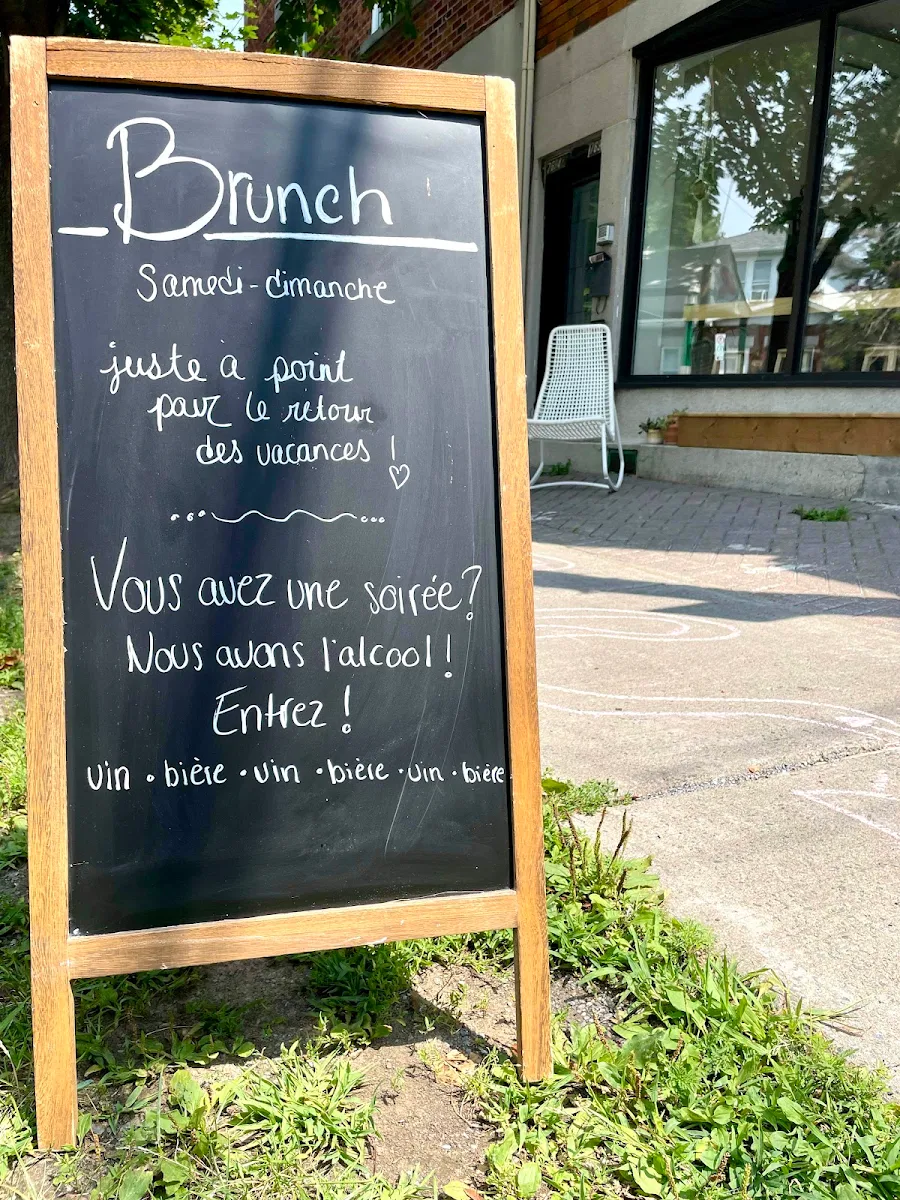 Brunch
Samedi - dimanche
juste à point
pour le retour
des vacances !
Vous avez une soirée?
Nous avons l'alcool !
Entrez !
vin • bière • vin • bière • vin • bière